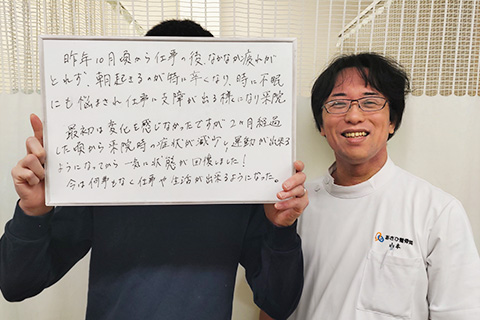 昨年10月頃から仕事の後、なかなか疲れが
とれず、朝起きるのが特に辛くなり、時に不眠
にも悩まされ仕事に支障が出る様になり来院
最初は変化を感じなかったですが2ヵ月経過
した頃から来院時の症状が減少し運動が出来る
ようになってから一気に状態が回復しました!
今は何事もなく仕事や生活が出来るようになった。
あさひ整骨院